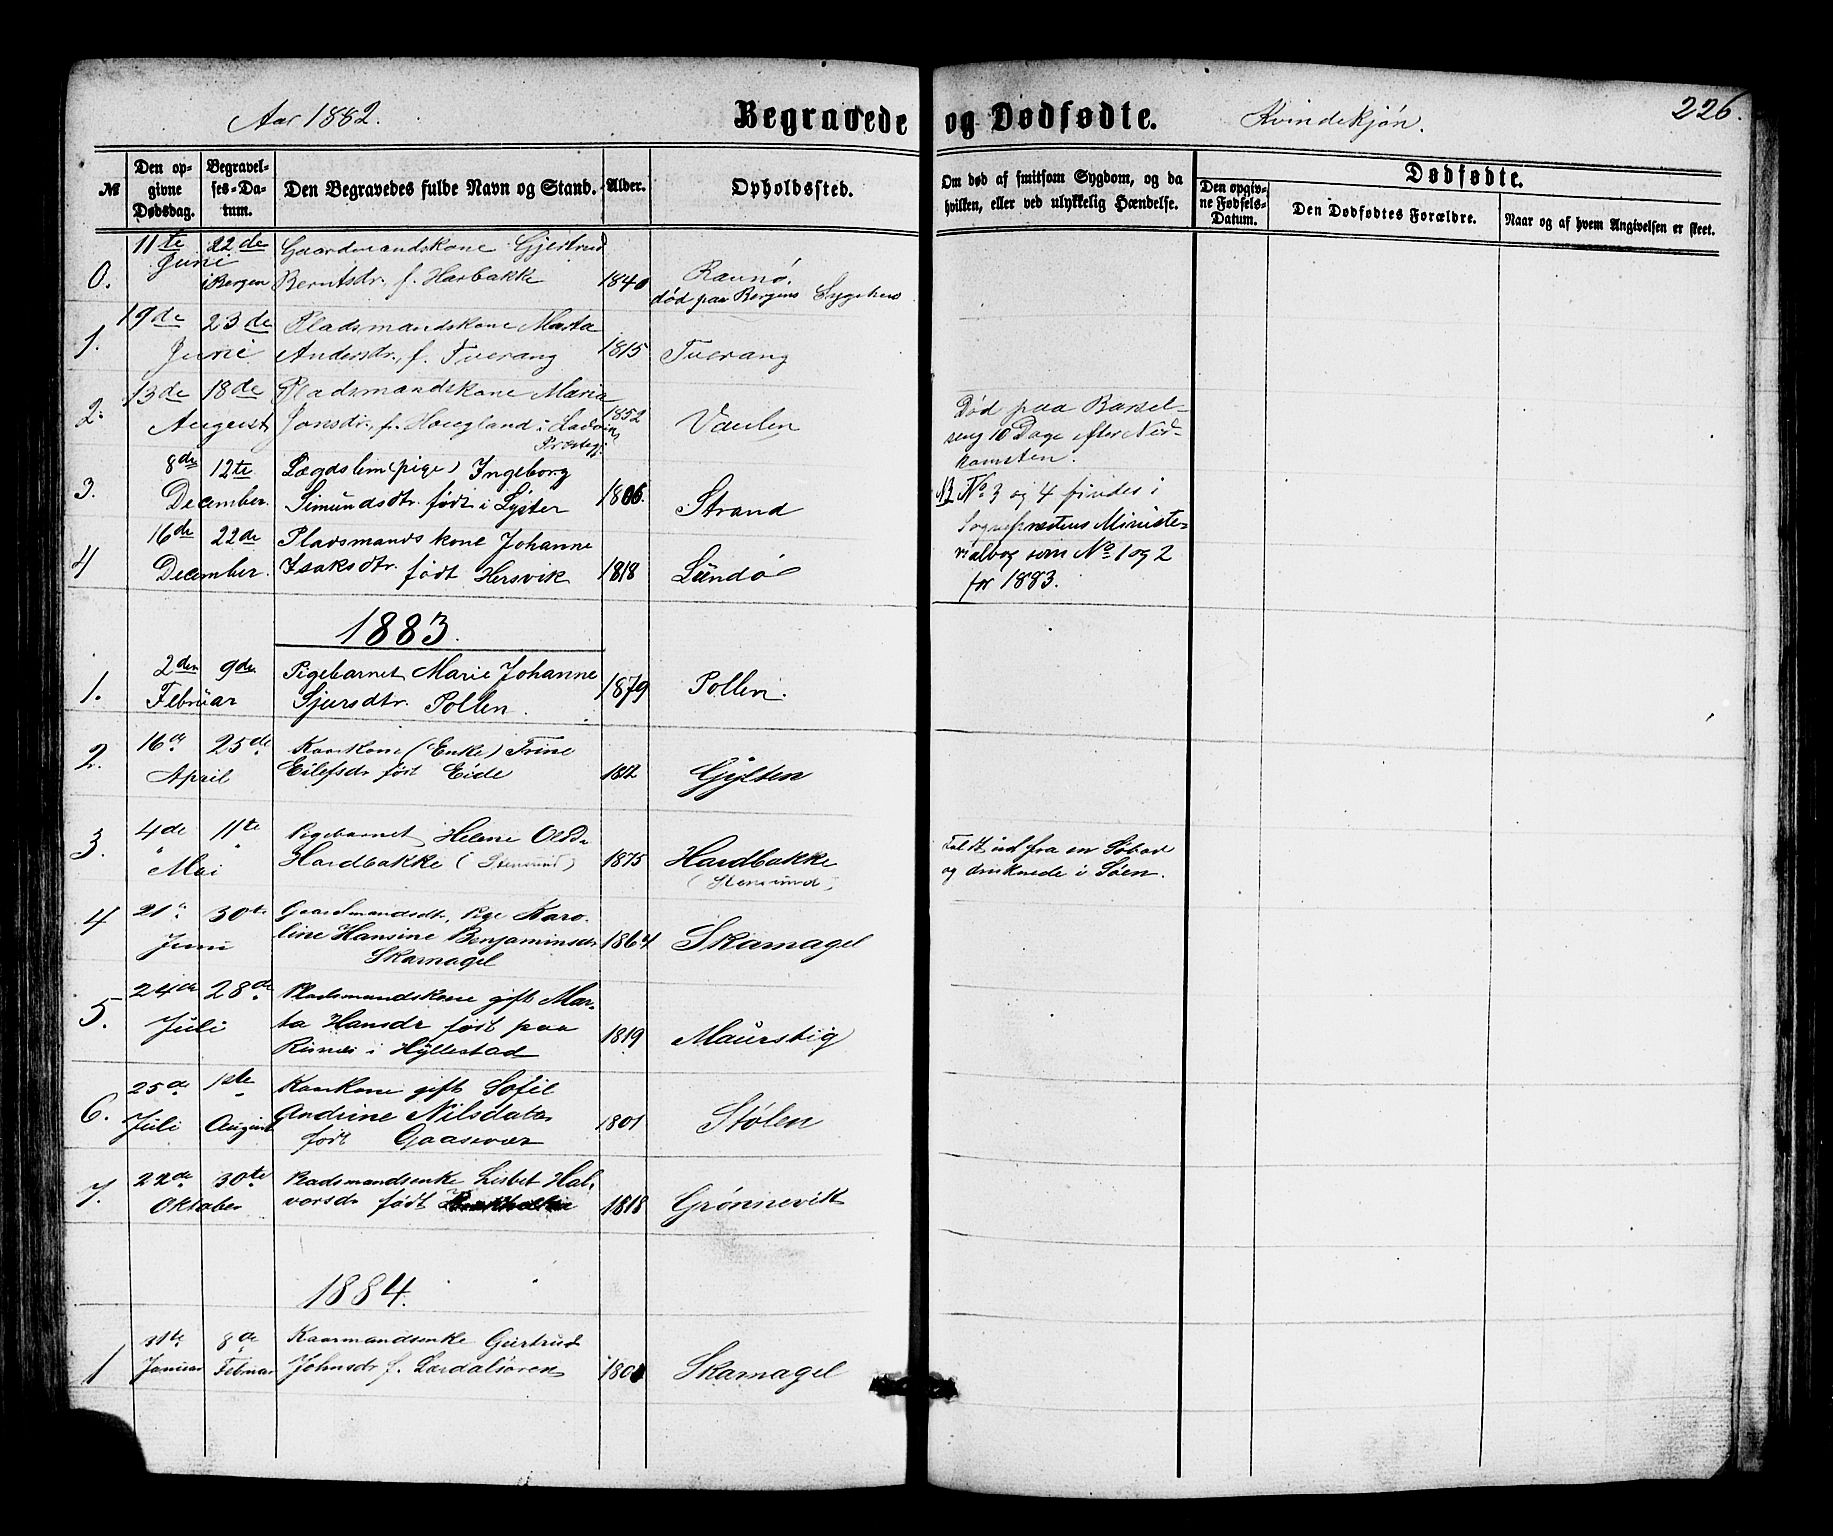 Aar 1882. Begravede og Dødfødte. Kvindekjøn. 226.
№ Den opgivne Dødsdag. Begravelses-Datum. Den Begravedes fulde Navn og Stand. Alder. Opholdssted. Om død af smitsom Sygdom, og da hvilken, eller ved ulykkelig Hændelse. Dødfødte. Den opgivne Fødsels-Datum. Den Dødfødtes Forældre. Naar og af hvem Angivelsen er skeet.
11te 22de Gaardmandskone Gjertrud
0. Juni i Bergen Berntsdr. f. Harbakke 1840 Ravnø.
død paa Bergens Sygehus
19de 23de Pladsmandskone Marta
1. Juni Andersdr. f. Tverang 1815 Tverang
13de 18de Pladsmandskone Maria
2. August Jonsdr. f. Hougland i Ladvig 1852 Vaulen Død paa Barsel-
Prestegj. seng 10 Dage efter Ned-
komsten.
8de 12te Lægdslem (pige) Ingeborg
3. December. Simundsdtr. født i Lyster 1806. Strand NB No 3 og 4 findes i
Sognepræstens Ministe-
16de 22de Pladsmands kone Johanne
rialbog som No 1 og 2
4 December. Isaksdtr. født Hersvik 1818 Lundø
for 1883.
1883.
2den 9de Pigebarnet Marie Johanne
1. Februar Sjursdtr. Pollen. 1879 Pollen.
16de 25de Kaarkone (Enke) Trine
2. April Eilefsdr født Eide 1812 Gylten
4de 11te Pigebarnet Helene Olsdr
3. Mai Hardbakke (Stensund) 1875 Hardbakke Faldt ud fra en Søbod
(Stensund) og druknede i Søen.
4 21 30te Gaardmandsdt. Pige Karo-
Juni line Hansine Benjaminsdr 1864 Skarnagel
Skarnagel
24de 28de Pladsmandskone gift Mar-
5. Juli ta Hansdr født paa 1819 Maurstig
Risnes i Hyllestad
25de 1ste Kaarkone gift Sofie
6. Juli August Andrine Nilsdatr 1801 Stølen
født Gaasevær
22de 30te Pladsmandsenke Lisbet Hal-
7. Oktober vorsdr født 1818 Grønnevik
1884.
8de Kaarmandsenke Gjertrud
1 Januar Februar Johnsdr f. Lærdalsøren 1801 Skarnagel